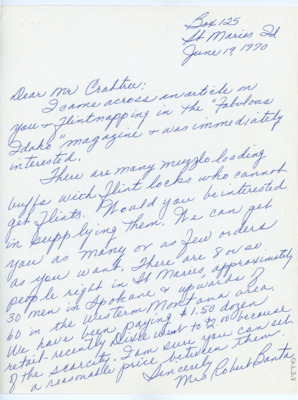 Box 125
St Maries Id
June 19 1970
Dear Mr Crabtree:
I came across an article on
you & Flintnapping in the "Fabulous
Idaho" magazine & was immediately
interested.
There are many muzzle loading
buffs with Flint locks who cannot
get Flints. Would you be interested
in supplying them. We can get
you as many or as few orders
as you want. There are 8 or so
people right in St Maries, approximately
30 men in Spokane & upwards of
60 in the Western Montana area.
We have been paying $1.50 dozen
retail - recently Dixie went to 2.00 because
of the scarcity. I am sure you can set
a reasonable price between them
Sincerely
Mrs Robert Banta